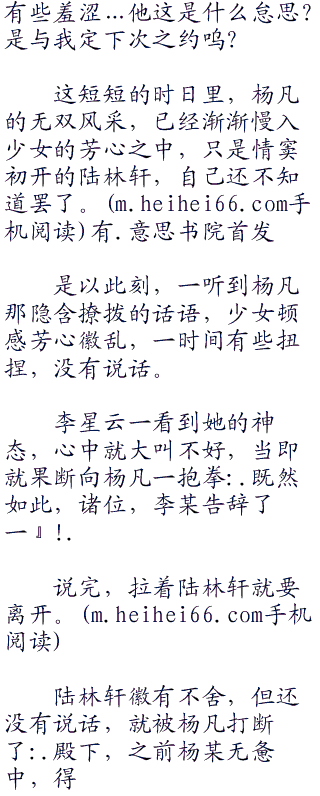 有些羞涩…他这是什么怠思?
是与我定下次之约呜?
这短短的时日里，杨凡
的无双风采，已经渐渐慢入
少女的芳心之中，只是情窦
初开的陆林轩，自己还不知
道罢了。(m.heihei66.com手
机阅读)有.意思书院首发
是以此刻，一听到杨凡
那隐含撩拨的话语，少女顿
感芳心徽乱，一时间有些扭
捏，没有说话。
李星云一看到她的神
态，心中就大叫不好，当即
就果断向杨凡一抱拳:.既然
如此，诸位，李某告辞了
一』!.
说完，拉着陆林轩就要
离开。(m.heihei66.com手机
阅读)
陆林轩徽有不舍，但还
没有说话，就被杨凡打断
了:.殿下，之前杨某无惫
中，得